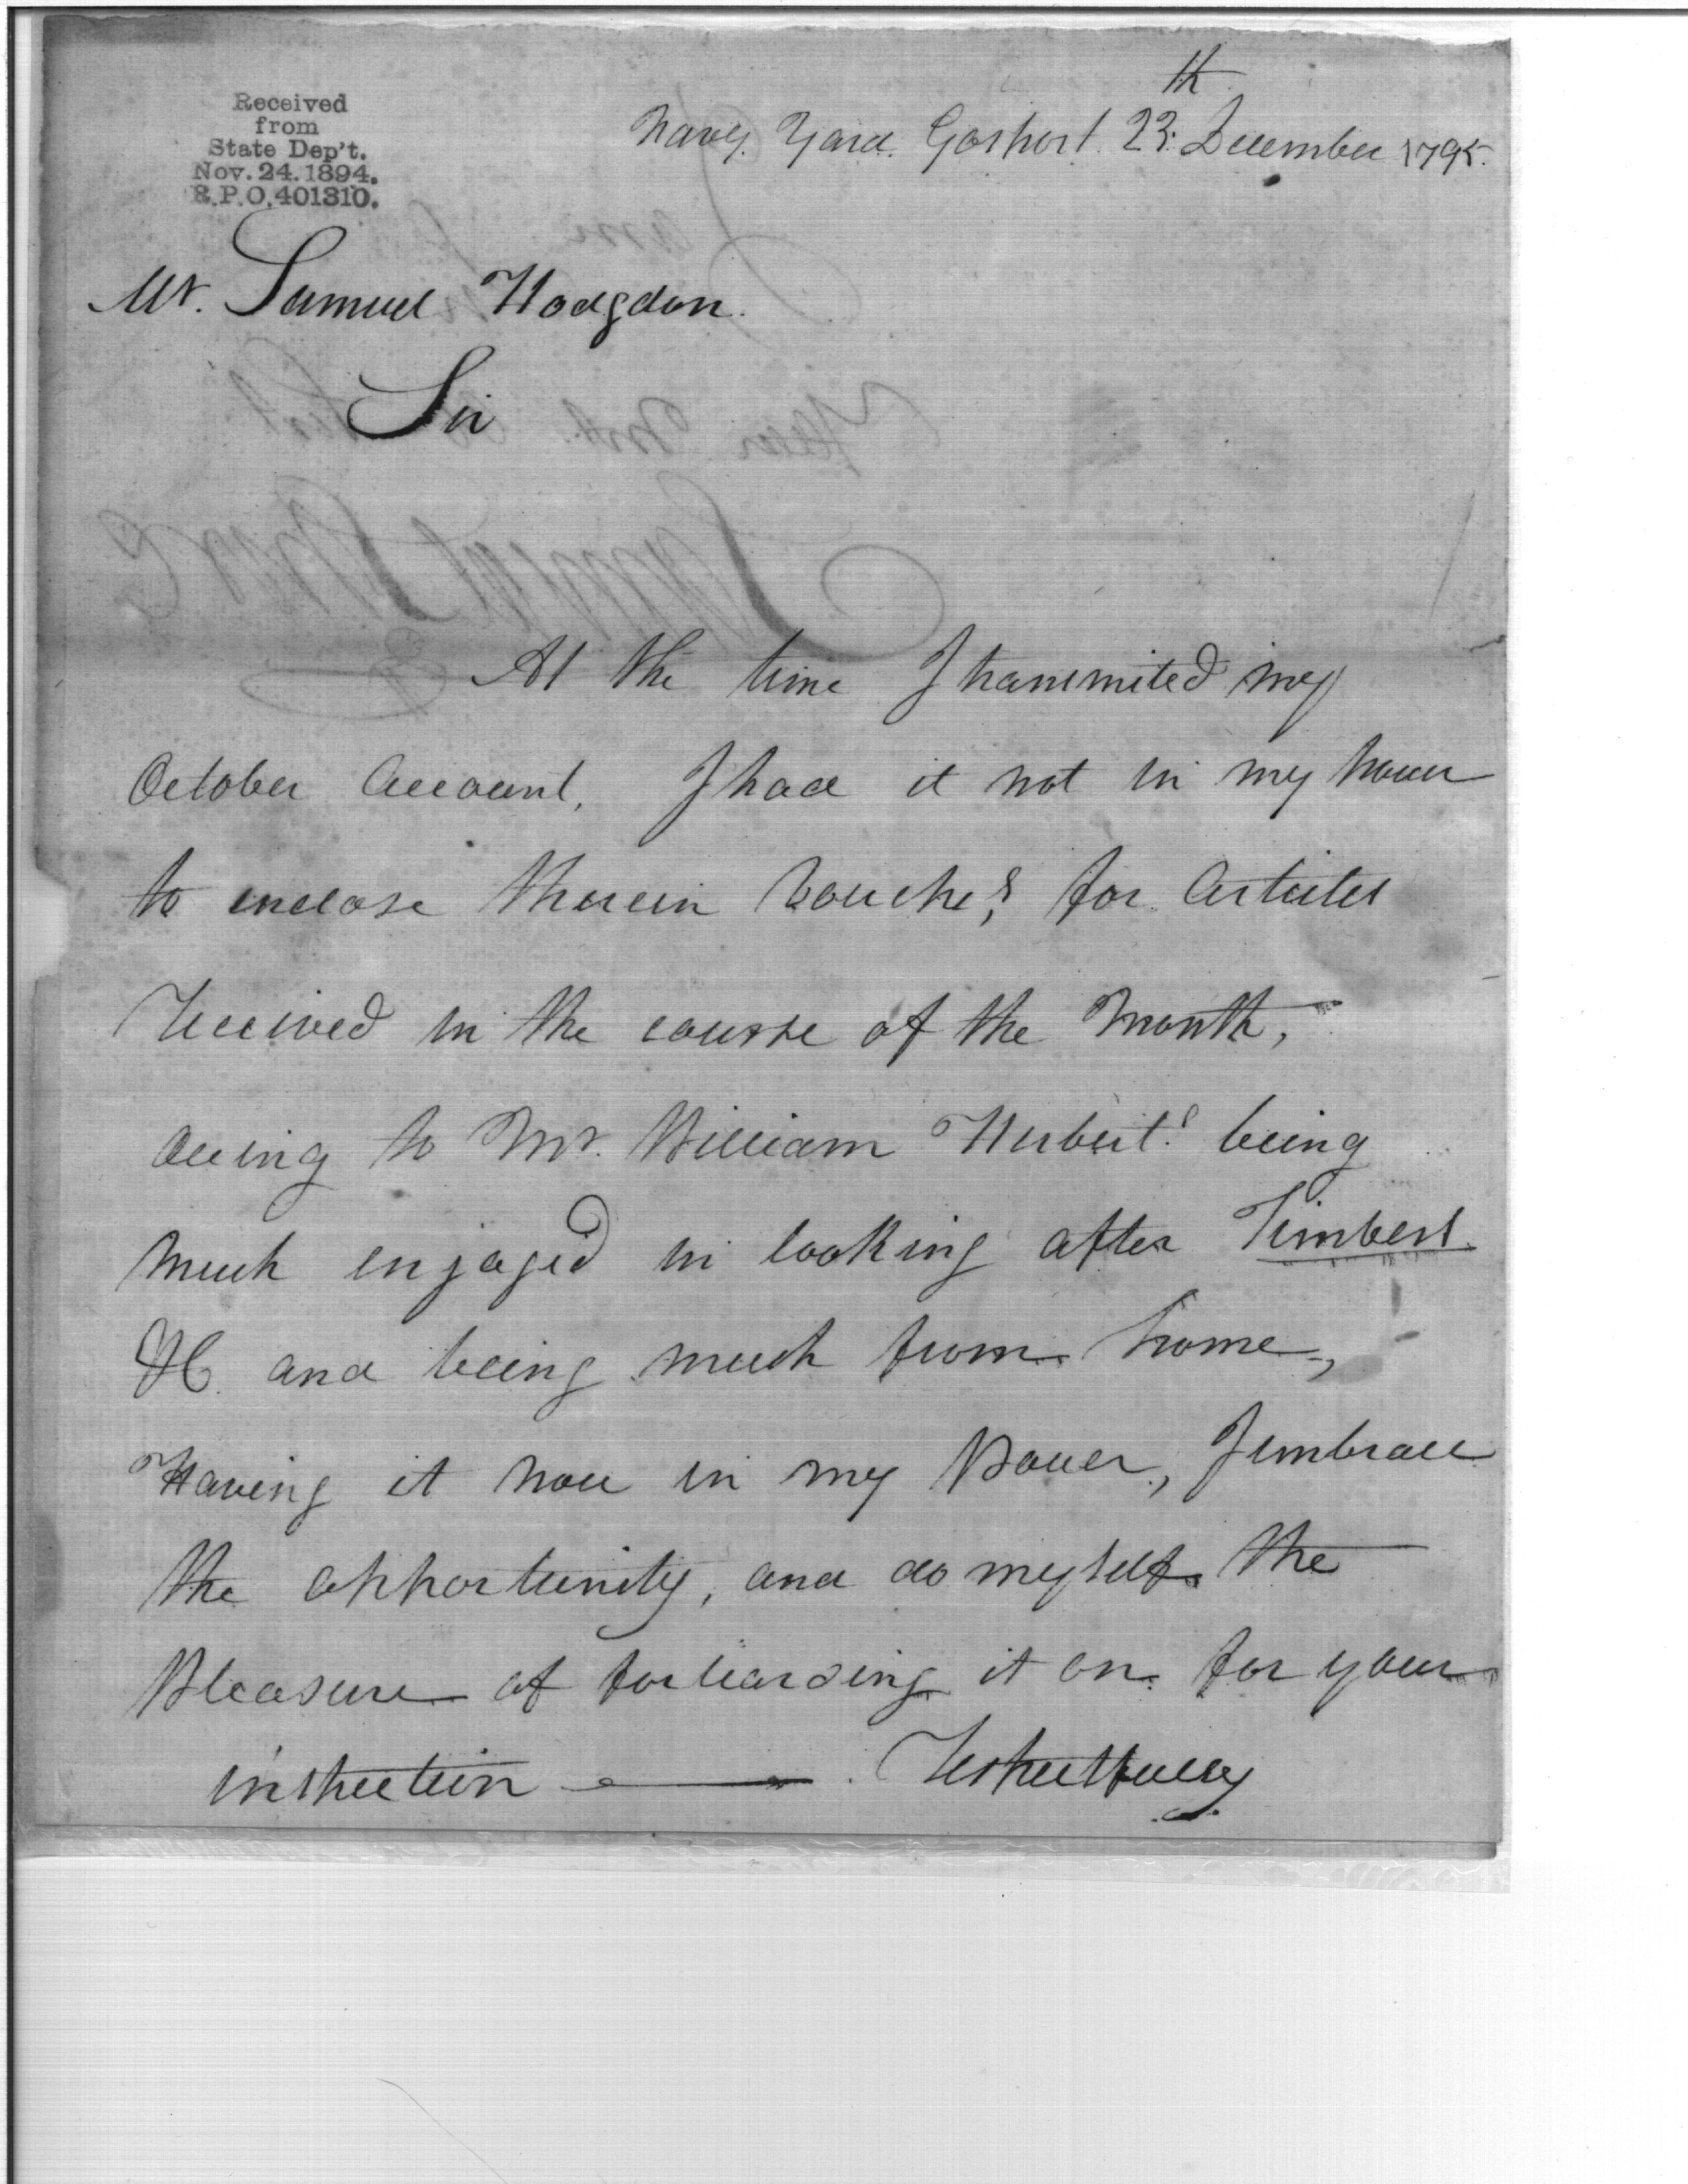 Received
from
State Dep't.
Nov. 24. 1894.
R.P.O. 401310.
th
Navy Yard Gosport 23: December 1795.
Mr. Samuel Hodgdon.
Sir
At the time I transmited my
October Account, I had it not in my power
to enclose therein Vouchers for Articles
Received in the course of the Month,
owing to Mr. William Herbert's being
much engaged in looking after Timbers
&C. and being much from home,
Having it now in my Power, I imbrace
the opportunity, and do myself the
Pleasure of forwarding it on for your
inspection Respectfully